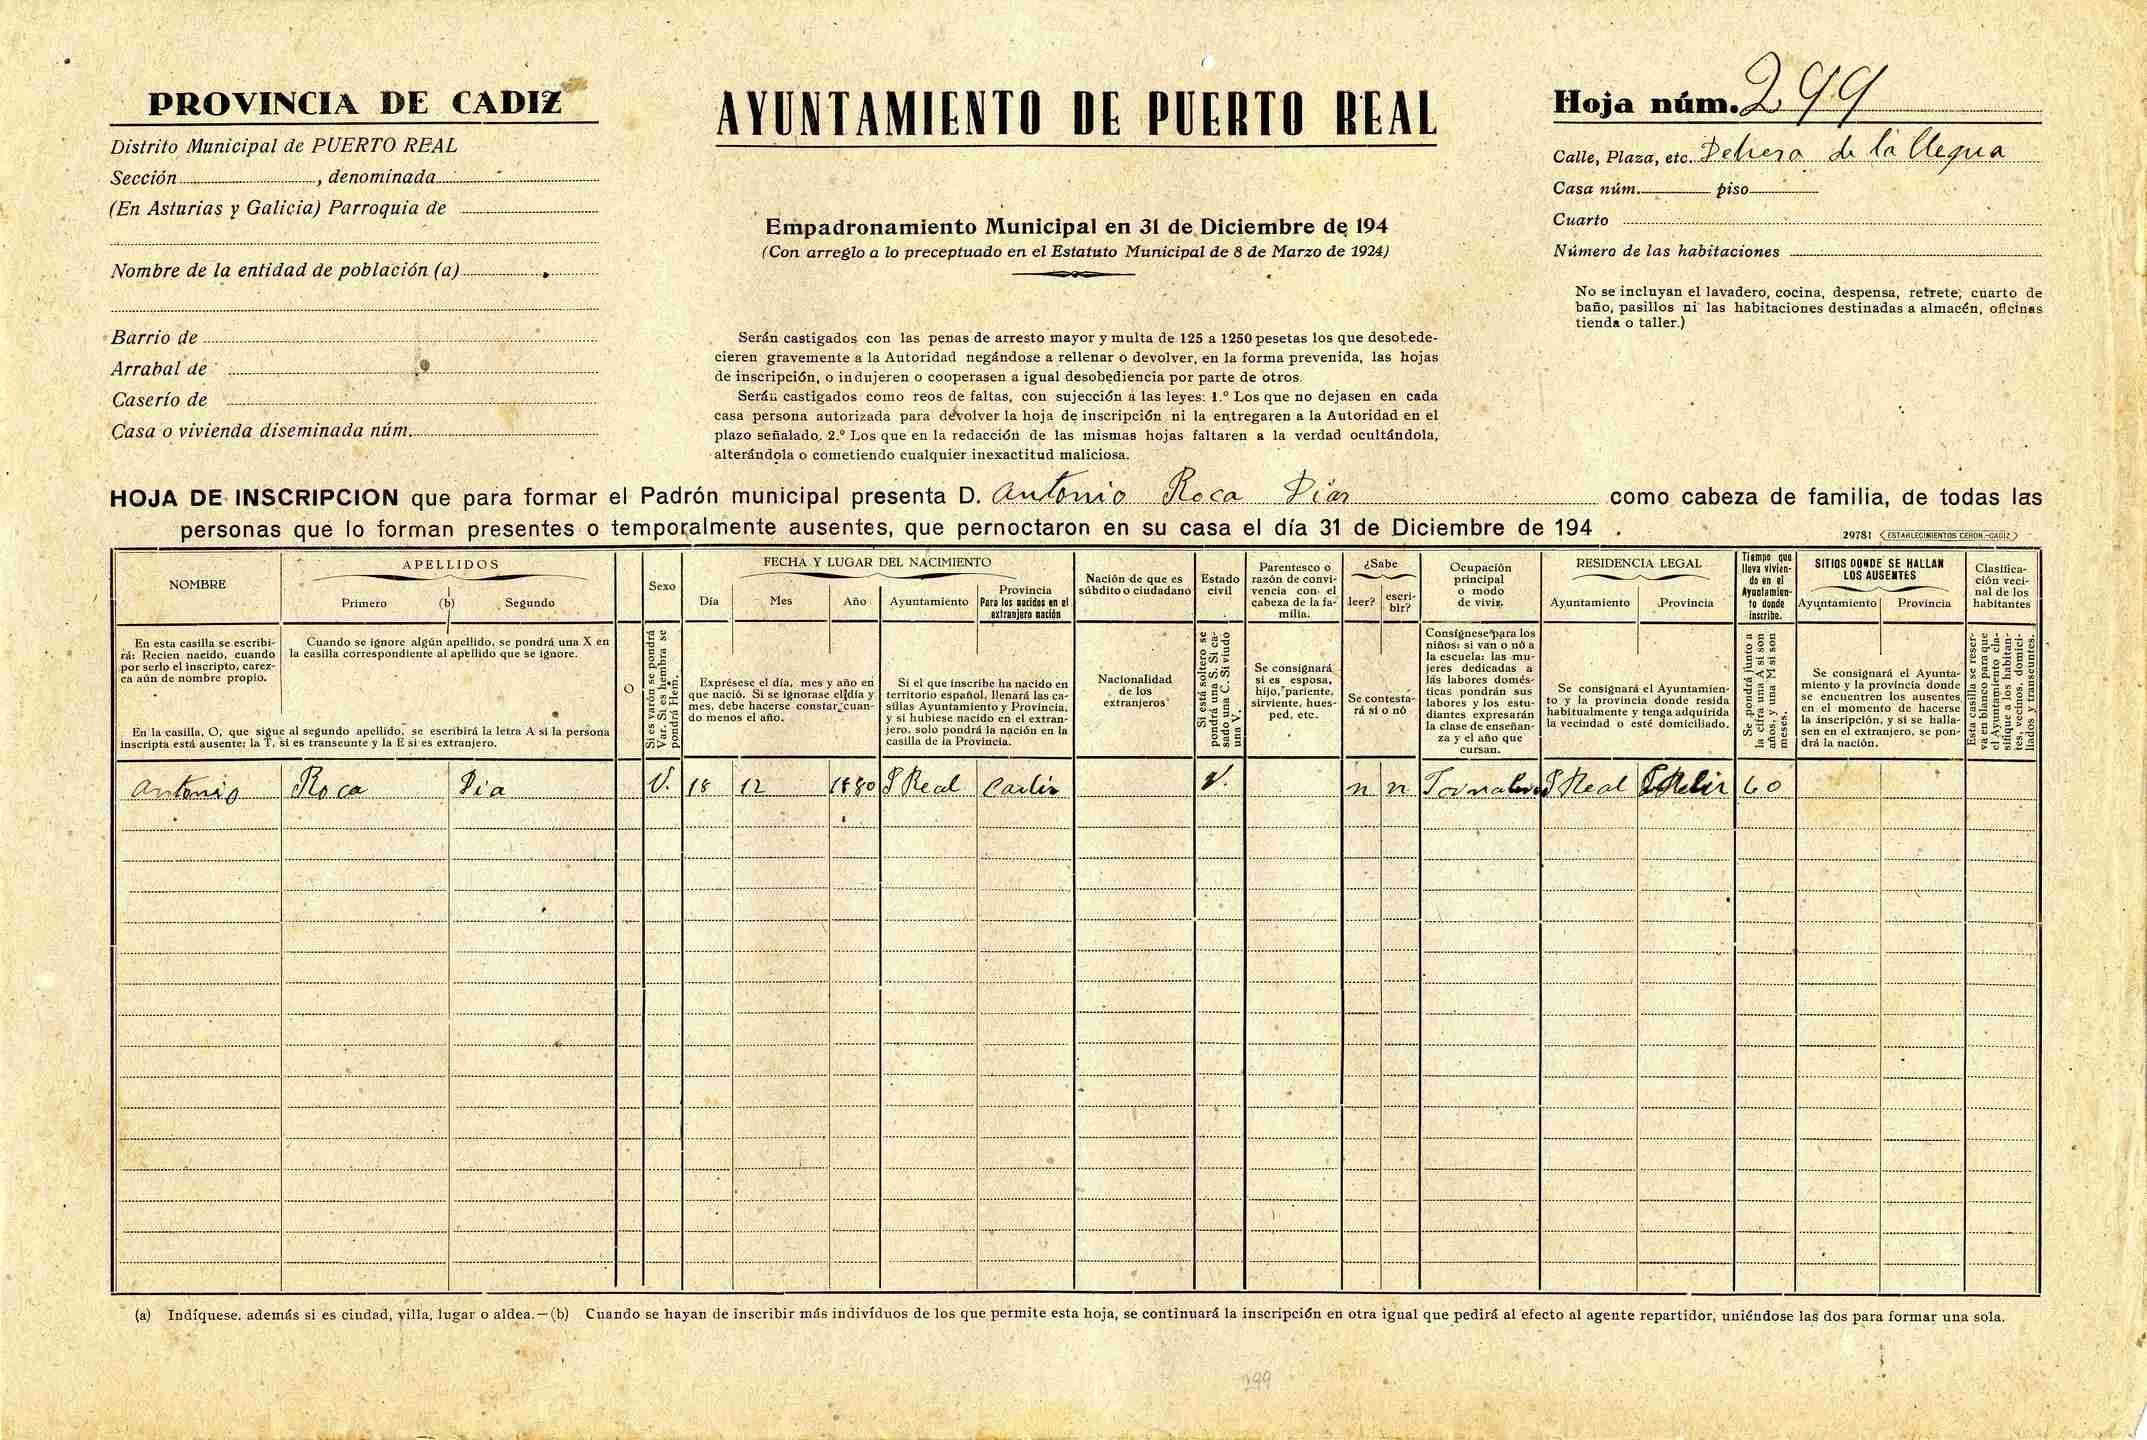 PROVINCIA DE CADIZ
Distrito Municipal de PUERTO REAL
Sección , denominada
(En Asturias y Galicia) Parroquia de
Nombre de la entidad de población (a)
Barrio de
Arrabal de
Caserío de
Casa o vivienda diseminada núm.
AYUNTAMIENTO DE PUERTO REAL
Empadronamiento Municipal en 31 de Diciembre de 194
(Con arreglo a lo preceptuado en el Estatuto Municipal de 8 de Marzo de 1924)
Serán castigados con las penas de arresto mayor y multa de 125 a 1250 pesetas los que desobede-
cieren gravemente a la Autoridad negándose a rellenar o devolver, en la forma prevenida, las hojas
de inscripción, o indujeren o cooperasen a igual desobediencia por parte de otros.
Serán castigados como reos de faltas, con sujección á las leyes: 1.º Los que no dejasen en cada
casa persona autorizada para devolver la hoja de inscripción ni la entregaren a la Autoridad en el
plazo señalado. 2.º Los que en la redacción de las mismas hojas faltaren a la verdad ocultándola,
alterándola o cometiendo cualquier inexactitud maliciosa.
Hoja núm. 299
Calle, Plaza, etc. Dehesa de la Llegua
Casa núm. piso
Cuarto
Número de las habitaciones
No se incluyan el lavadero, cocina, despensa, retrete, cuarto de
baño, pasillos ni las habitaciones destinadas a almacén, oficinas
tienda o taller.)
HOJA DE INSCRIPCION que para formar el Padrón municipal presenta D. Antonio Roca Dias como cabeza de familia, de todas las
personas que lo forman presentes o temporalmente ausentes, que pernoctaron en su casa el día 31 de Diciembre de 194 .
29781 ESTABLECIMIENTOS CERON.-CADIZ
NOMBRE
APELLIDOS
Primero (b) Segundo
Sexo
FECHA Y LUGAR DEL NACIMIENTO
Día Mes Año Ayuntamiento
Provincia
Para los nacidos en el
extranjero nación
Nación de que es
súbdito o ciudadano
Estado
civil
Parentesco o
razón de convi-
vencia con el
cabeza de la fa-
milia.
¿Sabe
leer? escri-
bir?
Ocupación
principal
o modo
de vivir.
RESIDENCIA LEGAL
Ayuntamiento Provincia
Tiempo que
lleva vivien-
do en el
Ayuntamien-
to donde
inscribe.
SITIOS DONDE SE HALLAN
LOS AUSENTES
Ayuntamiento Provincia
Clasifica-
ción veci-
nal de los
habitantes
En esta casilla se escribi-
rá: Recien nacido, cuando
por serlo el inscripto, carez-
ca aún de nombre propio.
Cuando se ignore algún apellido, se pondrá una X en
la casilla correspondiente al apellido que se ignore.
En la casilla, O, que sigue al segundo apellido, se escribirá la letra A si la persona
inscripta está ausente; la T, si es transeunte y la E si es extranjero.
O
Si es varón se pondrá
Var. Si es hembra se
pondrá Hem.
Exprésese el día, mes y año en
que nació. Si se ignorase el día y
mes, debe hacerse constar cuan-
do menos el año.
Si el que inscribe ha nacido en
territorio español, llenará las ca-
sillas Ayuntamiento y Provincia,
y si hubiese nacido en el extran-
jero, solo pondrá la nación en la
casilla de la Provincia.
Nacionalidad
de los
extranjeros
Si está soltero se
pondrá una S. Si ca-
sado una C. Si viudo
una V.
Se consignará
si es esposa,
hijo, pariente,
sirviente, hues-
ped, etc.
Se contesta-
rá sí o nó
Consígnese para los
niños: si van o nó a
la escuela: las mu-
jeres dedicadas a
las labores domés-
ticas pondrán sus
labores y los estu-
diantes expresarán
la clase de enseñan-
za y el año que
cursan.
Se consignará el Ayuntamien-
to y la provincia donde resida
habitualmente y tenga adquirida
la vecindad o esté domiciliado.
Se pondrá junto a
la cifra una A si son
años, y una M si son
meses.
Se consignará el Ayunta-
miento y la provincia donde
se encuentren los ausentes
en el momento de hacerse
la inscripción, y si se halla-
sen en el extranjero, se pon-
drá la nación.
Esta casilla se reser-
va en blanco para que
el Ayuntamiento cla-
sifique a los habitan-
tes, vecinos, domici-
liados y transeuntes.
Antonio Roca Dia V. 18 12 1880 P Real Cadiz V. n n P Real 60
(a) Indíquese, además si es ciudad, villa, lugar o aldea.—(b) Cuando se hayan de inscribir más individuos de los que permite esta hoja, se continuará la inscripción en otra igual que pedirá al efecto al agente repartidor, uniéndose las dos para formar una sola.
299